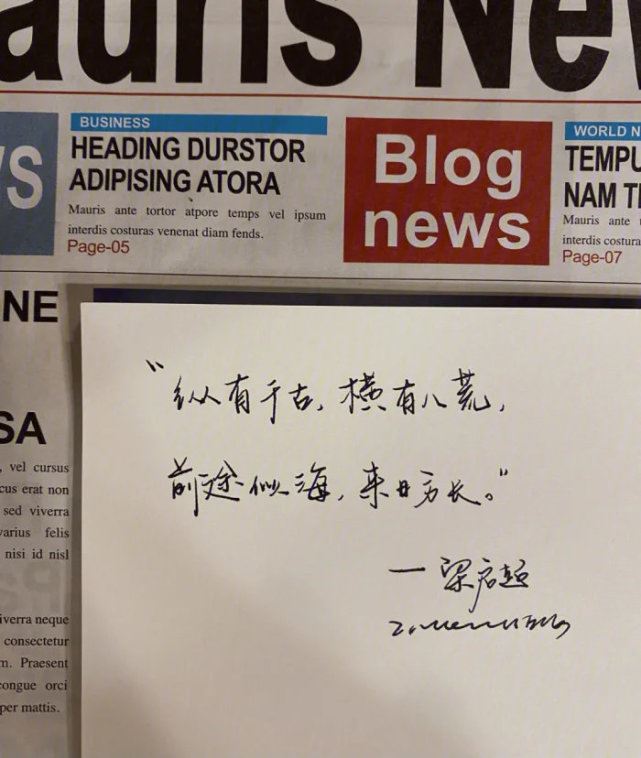 auris Nev
WS
BUSINESS
HEADING DURSTOR
ADIPISING ATORA
Mauris ante tortor atpore temps vel ipsum
interdis costuras venenat diam fends.
Page-05
Blog
news
WORLD N
TEMPU
NAM T
Mauris ante
interdis costura
Page-07
NE
SA
, vel cursus
cus erat non
sed viverra
varius felis
nisi id nisl
viverra neque
consectetur
m. Praesent
congue orci
per mattis.
“纵有千古，横有八荒，
前途似海，来日方长。”
—梁启超